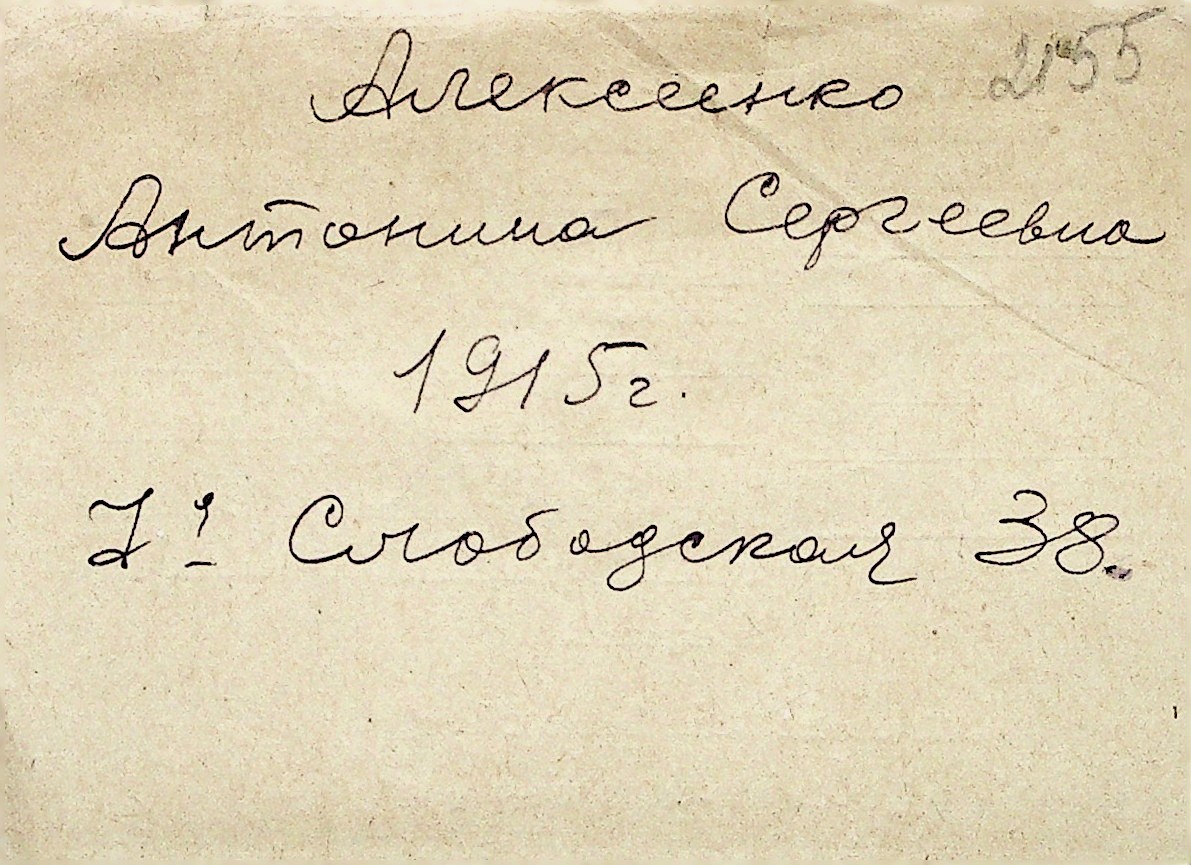 2155
Алексеенко
Антонина Сергеевна
1915г.
38.
Слободская